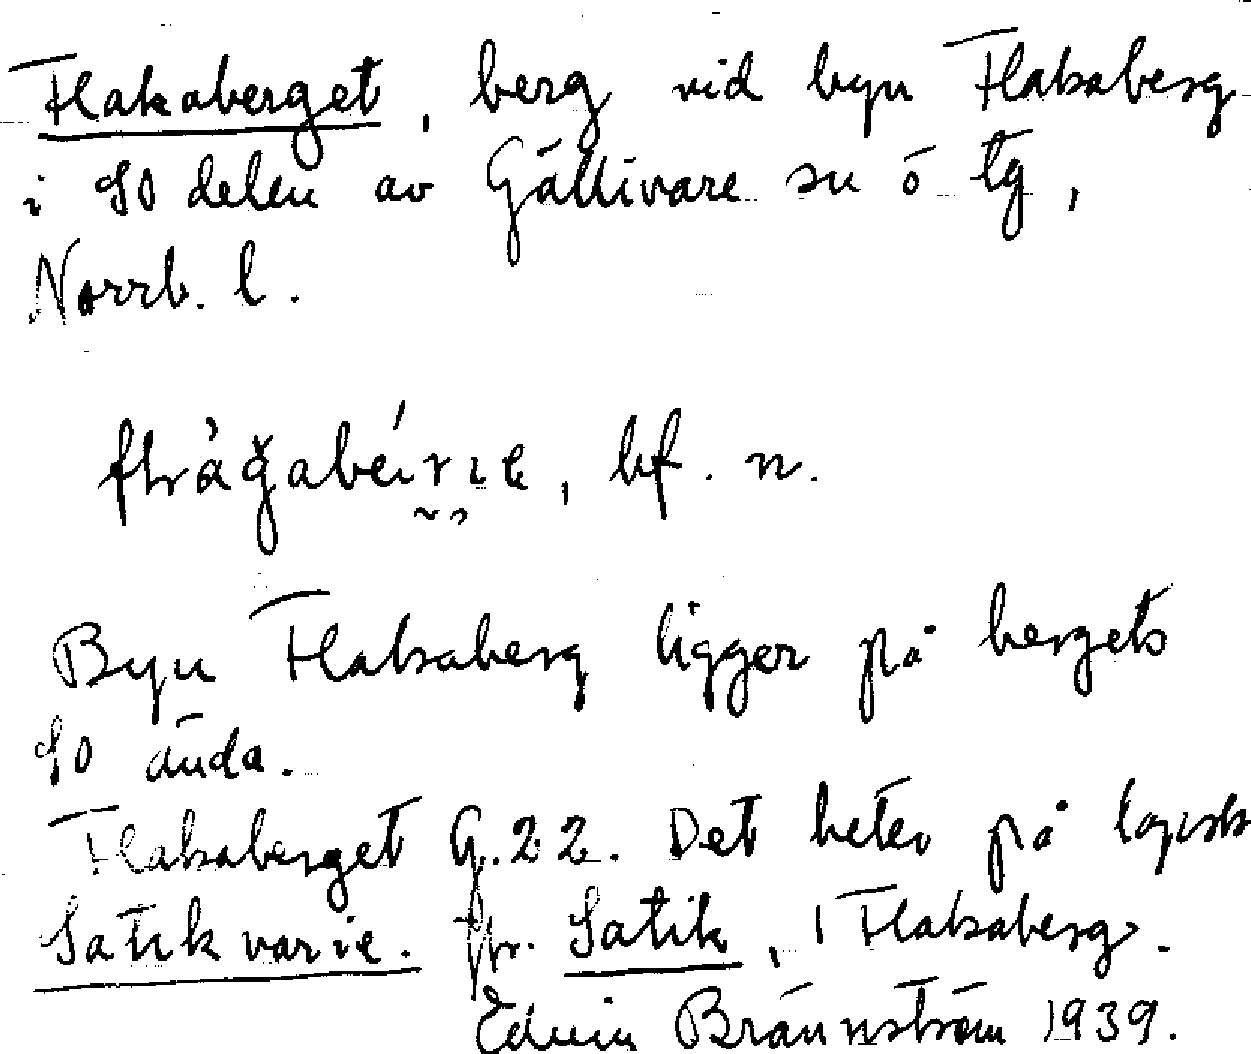 Flakaberget, berg vid byn Flakaberg
i SO delen av Gällivare sn ö tg,
Norrb. l.
bf. n.
Byn Flakaberg ligger på bergets
SO ända.
Flakaberget G.22. Det heter på lapska
Satikvarie. Jfr. Satik, Flakaberg.
Edvin Brännström 1939.